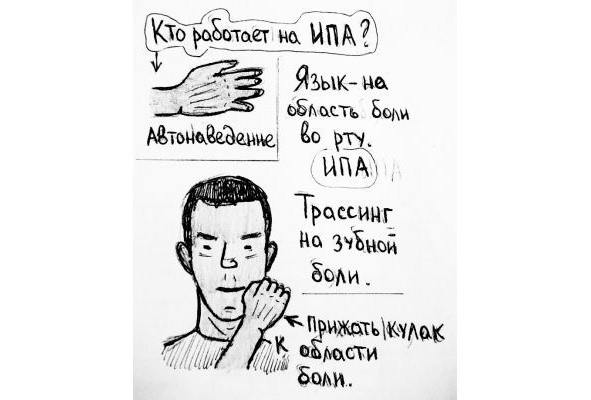 Кто работает на ИПА?
Автонаведение
Язык-на
область боли
во рту.
ИПА
Трассинг
на зубной
боли.
Прижать кулак
к области
боли.